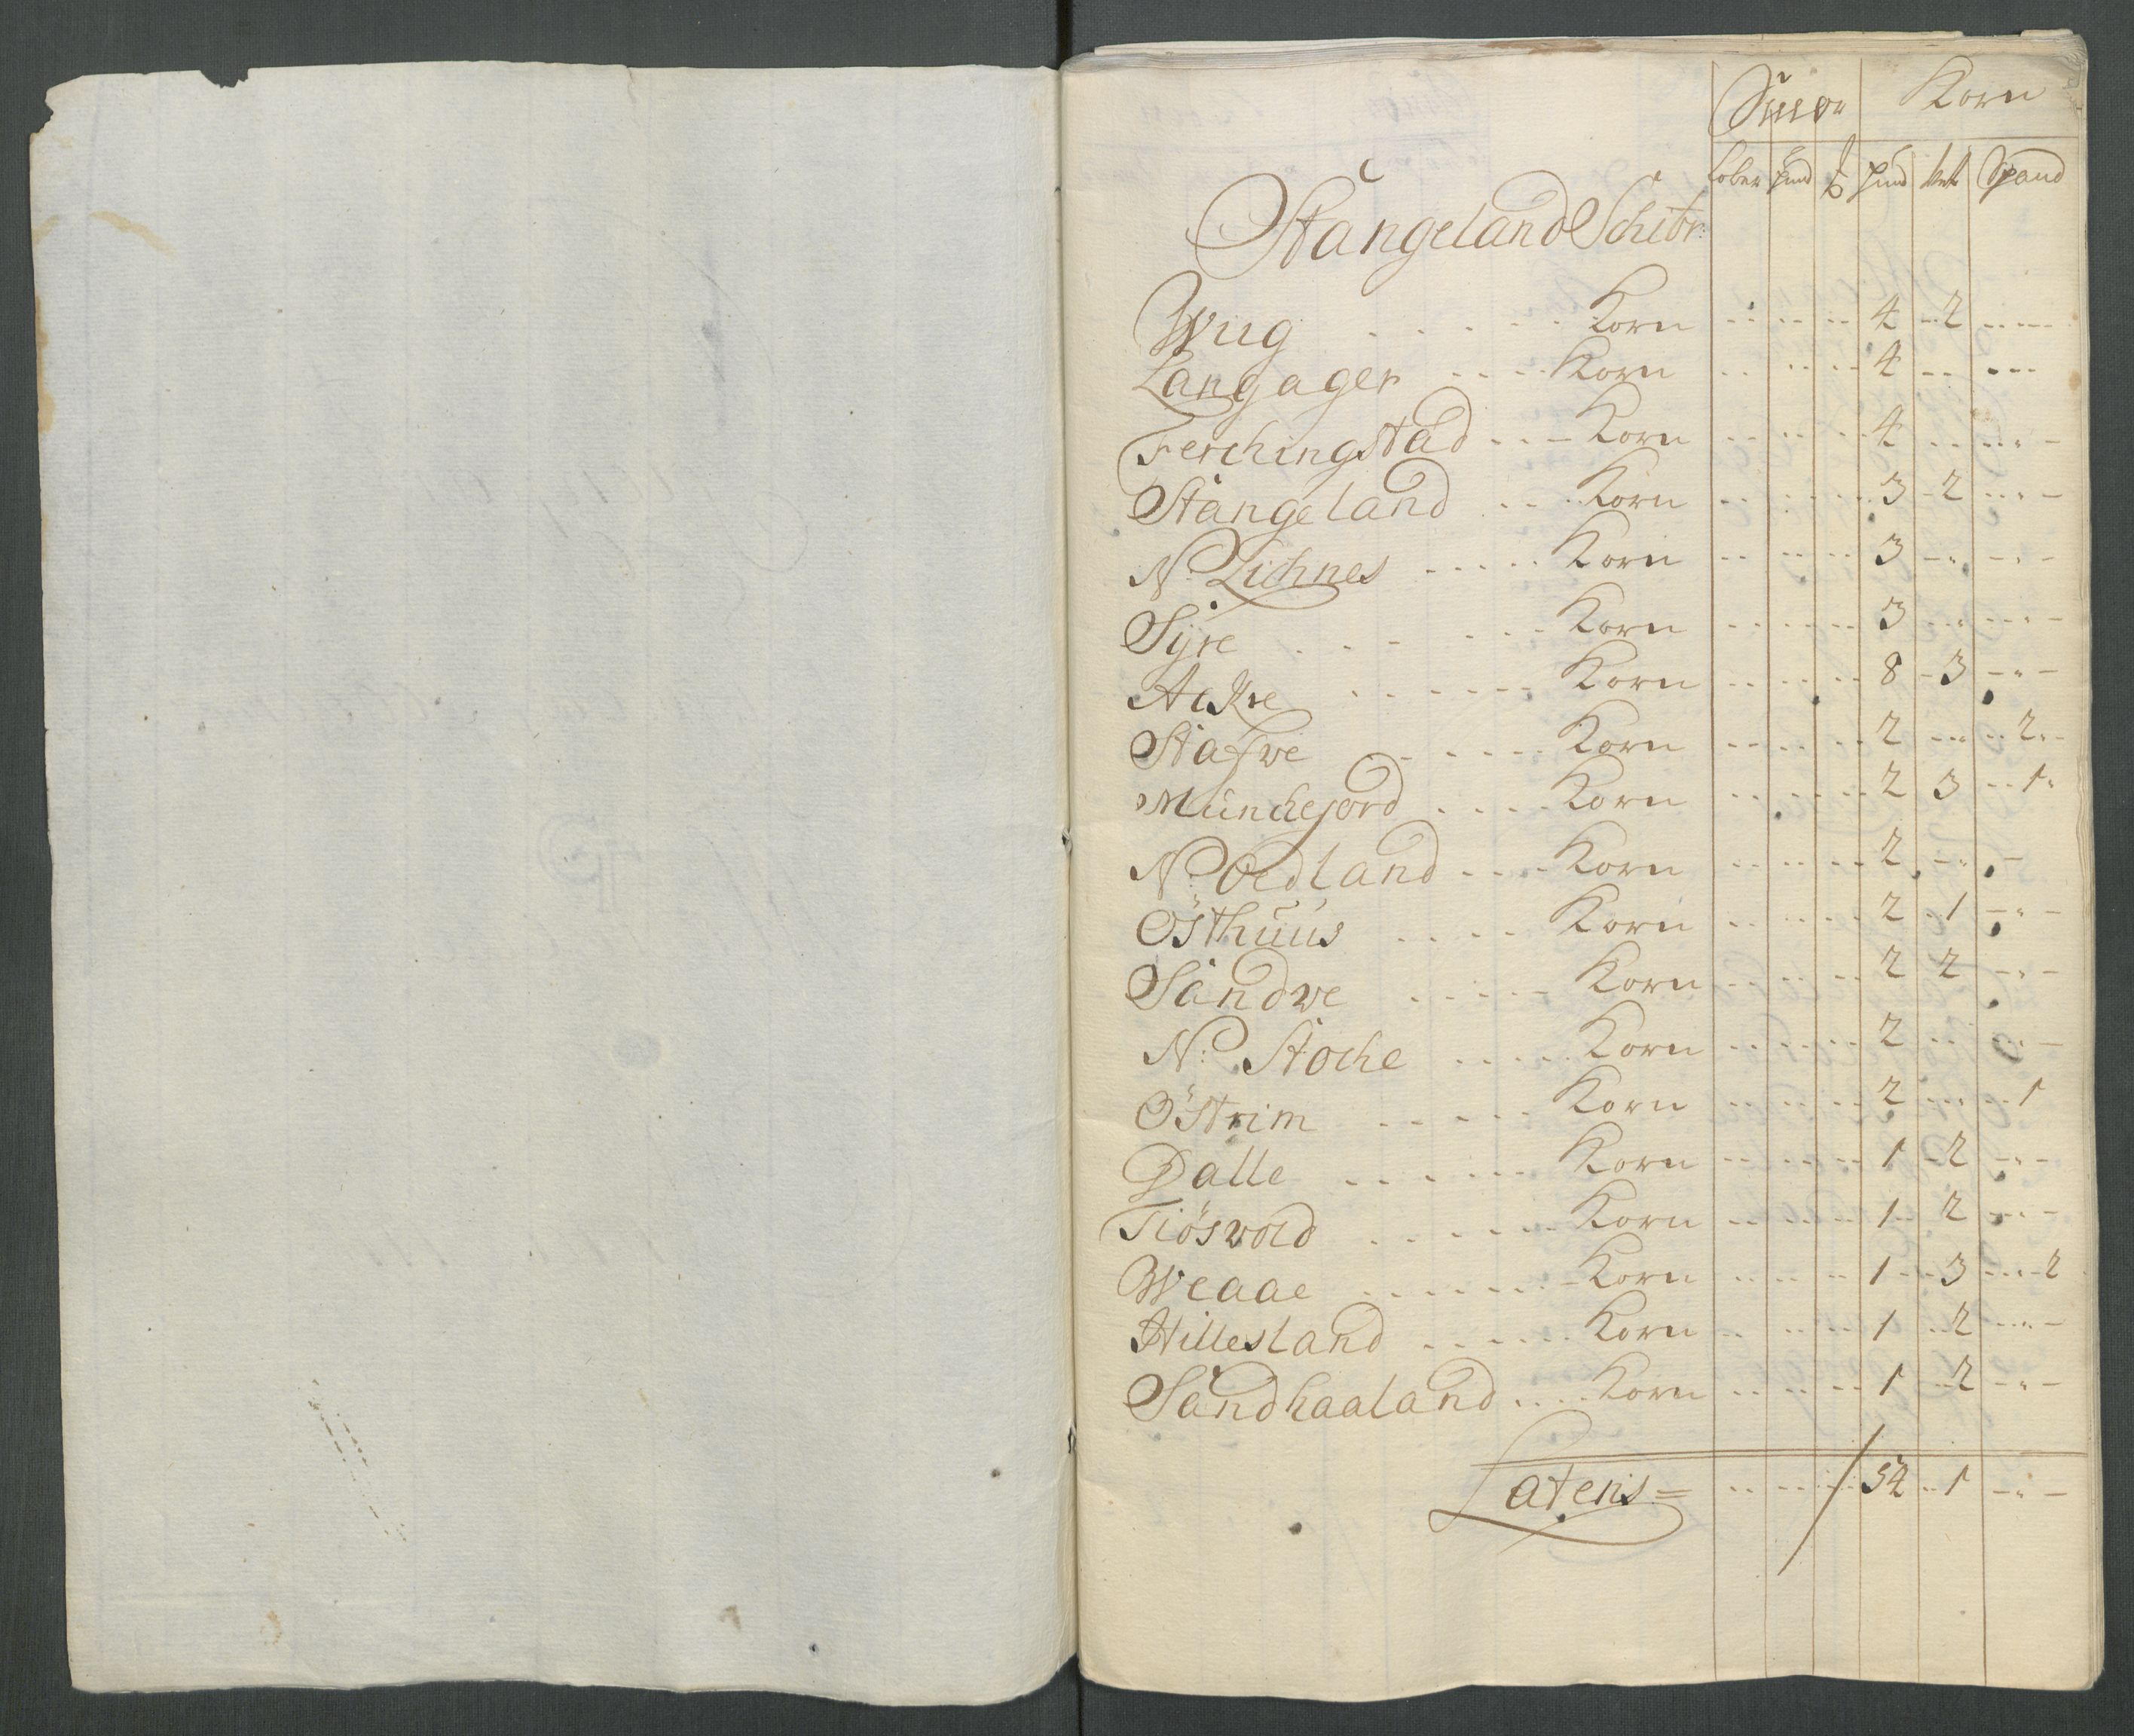 Korn
Løber pund ℔ pund Spand
Stangeland Schibr:
Wiig . . . . . Korn 4 2
Langager . . . . Korn 4
Ferchingstad . . . Korn 4
Stangeland . . . Korn 3 2
N: Lichnes . . . . . Korn 3
Syre . . . . . . Korn 3
Ackre . . . . . . Korn 8 3
Stafve . . . . . Korn 2 2
Münchejord . . . . Korn 2 3 1
N: Oedland . . . . Korn 2
Østhuus . . . . Korn 2 1
Sandve . . . . . Korn 2 2
N: Stoche . . . . . Korn 2
Østrim . . . . . Korn 2 1
Dalle . . . . . . Korn 1 2
Tiøsvold . . . . . . Korn 1 2
Weaae . . . . . . . Korn 1 3 2
Hillesland . . . . . . Korn 1 2
Sandhaaland . . . . Korn 1 2
Latens = 54 1